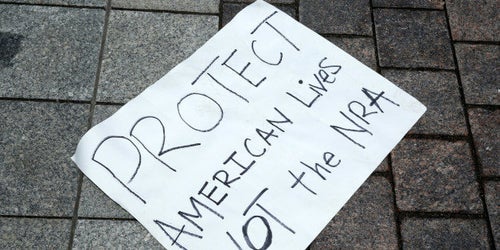 PROTECT
AMERICAN Lives
NOT the NRA